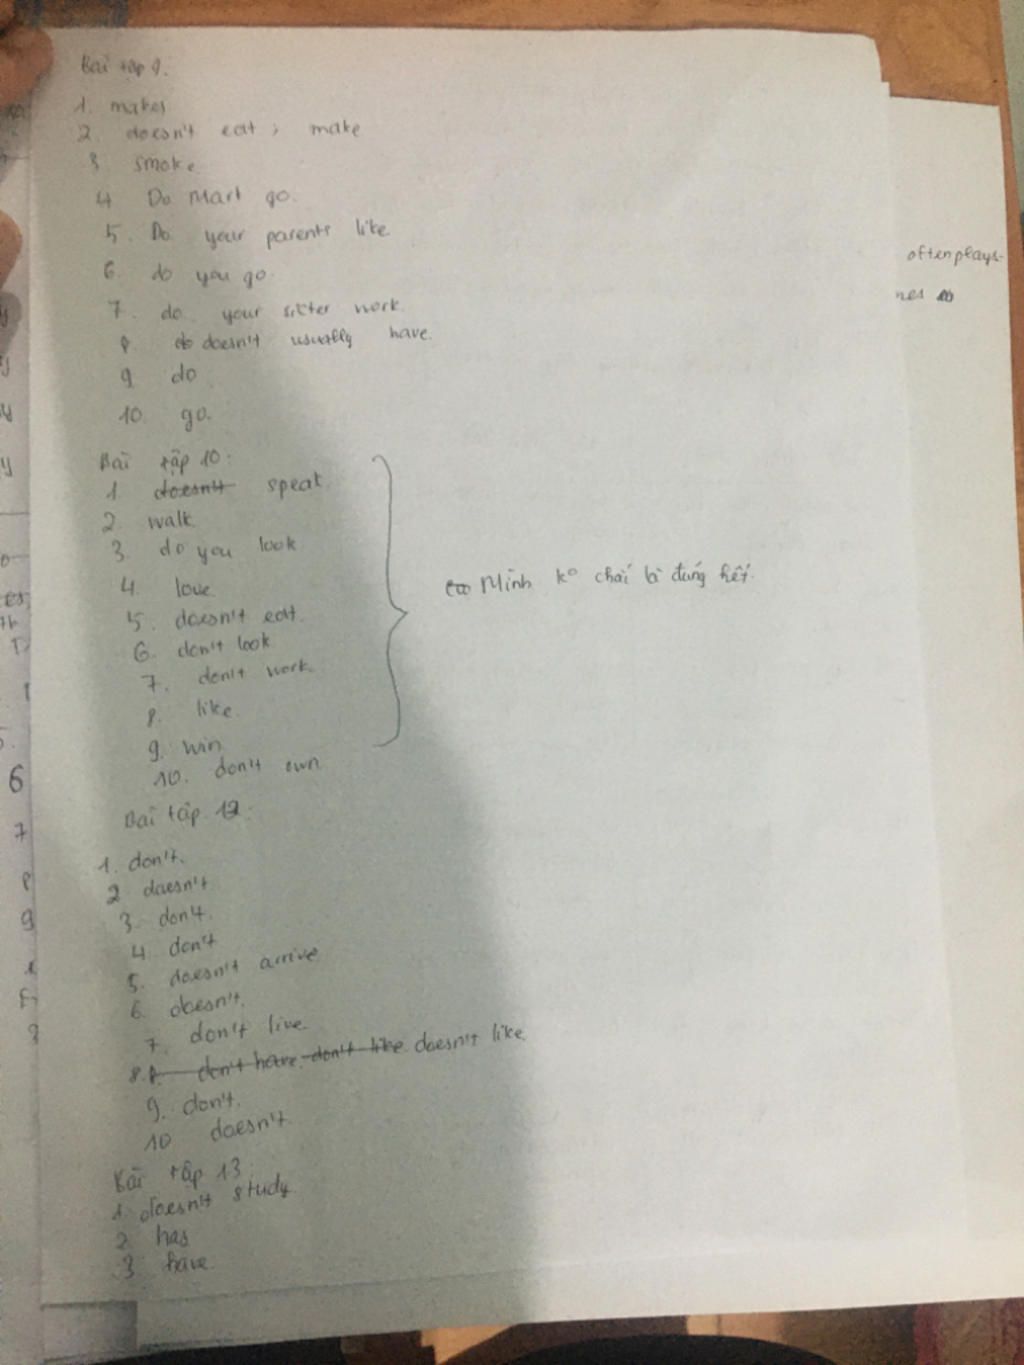 Bài tập 9:
1. makes
2. doesn't eat ; make
3 smoke
4 Do Mart go.
5. Do your parents like
6. do you go
7. do your sitter work.
8 do doesn't usually have.
9 do
10. go.
Bài tập 10:
1 doesn't speak.
2. walk
3. do you look
4. love
5. doesn't eat.
6. don't look
7. don't work.
8. like.
9. win
10. don't own
Mình ko chắc là đúng hết.
Bài tập 12:
1. don't.
2 doesn't
3. don't.
4. don't
5. doesn't arrive
6. doesn't.
7. don't live.
8. don't have. don't like. doesn't like.
9. don't.
10 doesn't.
Bài tập 13
1. doesn't study
2 has
3 have
often plays.
6
7
9